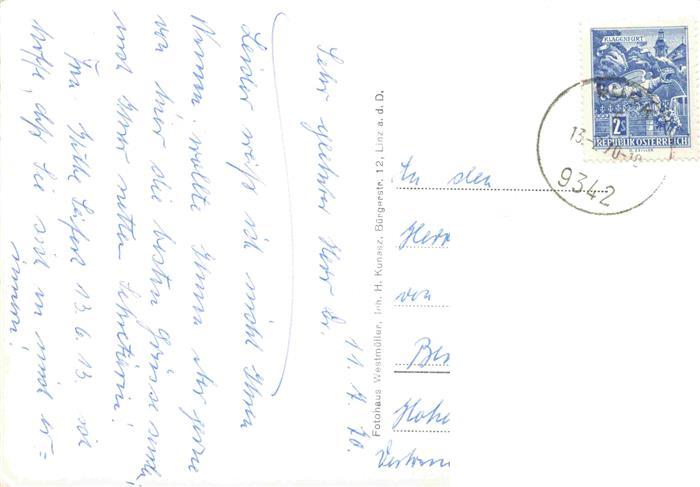 11. 7. 70.
Sehr geehrter Herr Dr.
Leider weiß ich nicht Ihren
Namen, wollte Ihnen aber gerne
von hier die besten Grüsse senden,
und Ihrer netten Sekretärin!
Fra.
13. 6. 13. ich
hoffe, daß Sie sich an mich er=
innern!
Fotohaus Westmüller, Inh. H. Kunasz, Bürgerstr. 12, Linz a. d. D.
KLAGENFURT
2S
REPUBLIK ÖSTERREICH
9342
An den
Herr
von
Hohe